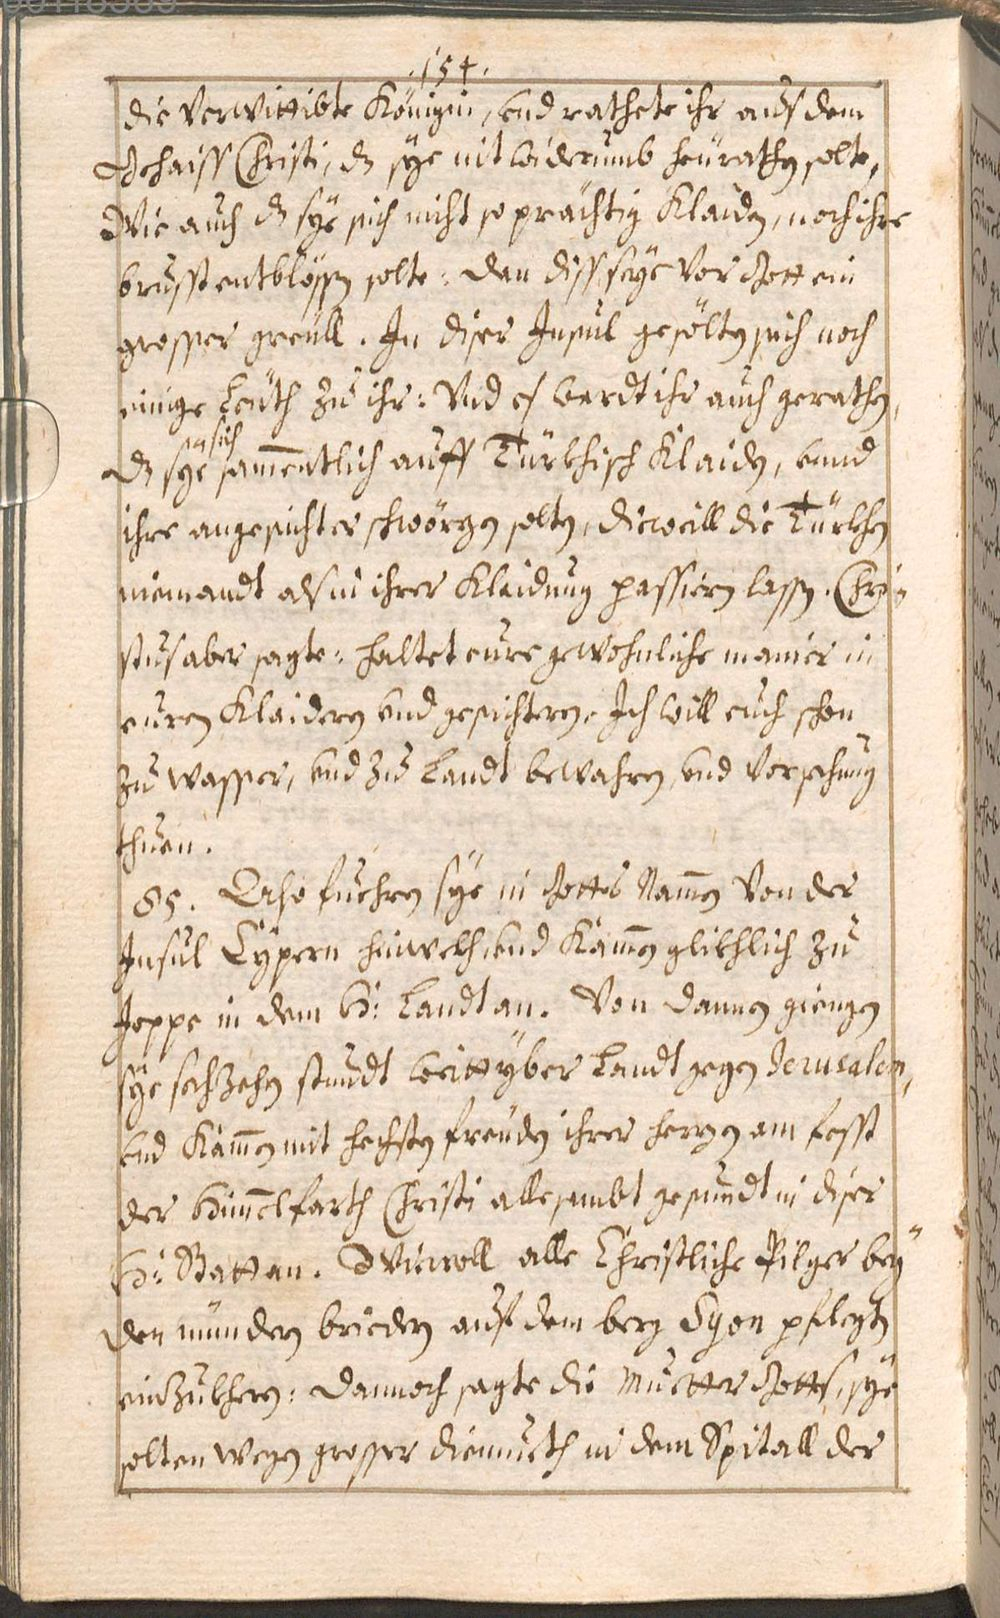 .154.
die verwittibte Königin, und rathete ihr auß dem
Gehaiss Christi, dz sÿe nit widerumb heürathen solte,
Wie auch dz sÿe sich nicht so prächtig Klaiden, noch ihre
brusst entblössen solte: dan diss seÿe vor Gott ein
grosser greüll. In diser Insul gesölten sich noch
einige Leüth zu ihr: Und es wardt ihr auch gerathen,
sich
dz sÿe samentlich auff Türkhisch Klaiden, unnd
ihre angesichter schwörzen solten, dieweill die Türkhen
niemandt als in ihrer Klaidung passiern lassen. Chri-
stus aber sagte: haltet eure gewohnliche manier in
euren Klaidern und gesichtern, Ich will euch schon
zu wasser, und zu Landt bewahren, und Vorsehung
thuen.
85. Also fuehren sÿe in Gottes Namen von der
Insul Cÿpern hinwekh, und Kamen glikhlich zu
Joppe in dem H: Landt an. Von dannen giengen
sÿe sechzehen stundt weitt ÿber Landt gegen Jerusalem,
und Kamen mit hechsten freüden ihrer herzen am fesst
der Himelfarth Christi alle sambt gesundt in diser
H: Statt an. Wiewoll alle Christliche Pilger beÿ
den mindern brüedern auf dem berg Syon pflegten
einzukhern: dannoch sagte die Muetter Gottes, sÿe
solten wegen grosser diemueth in dem Spitall der